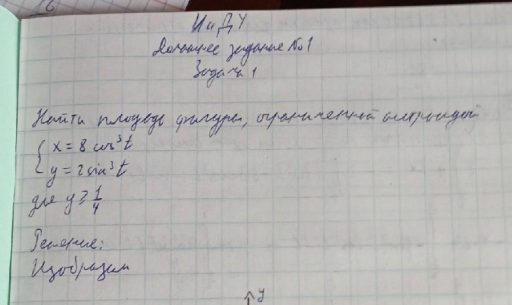 ИиДУ
Домашнее задание №1
Задача 1
Найти площадь фигуры, ограниченной астроидой
{ x = 8 cos³t
{ y = 2 sin³t
для y ≥ 1/4
Решение:
Изобразим
y